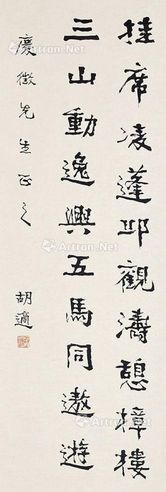 挂席凌蓬邱觀濤憩樟樓
三山動逸興五馬同遨遊
慶徵先生正之
胡適
Artron.Net